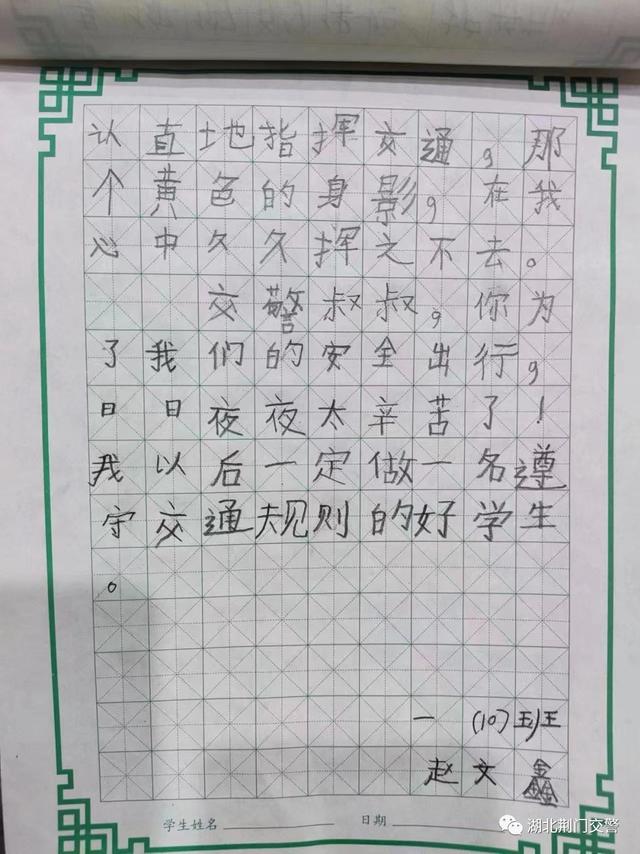 认直地指挥交通，那
个黄色的身影，在我
心中久久挥之不去。
交警叔叔，你为
了我们的安全出行，
日日夜夜太辛苦了！
我以后一定做一名遵
守交通规则的好学生
。
一（10）班
赵文鑫
学生姓名 日期
湖北荆门交警